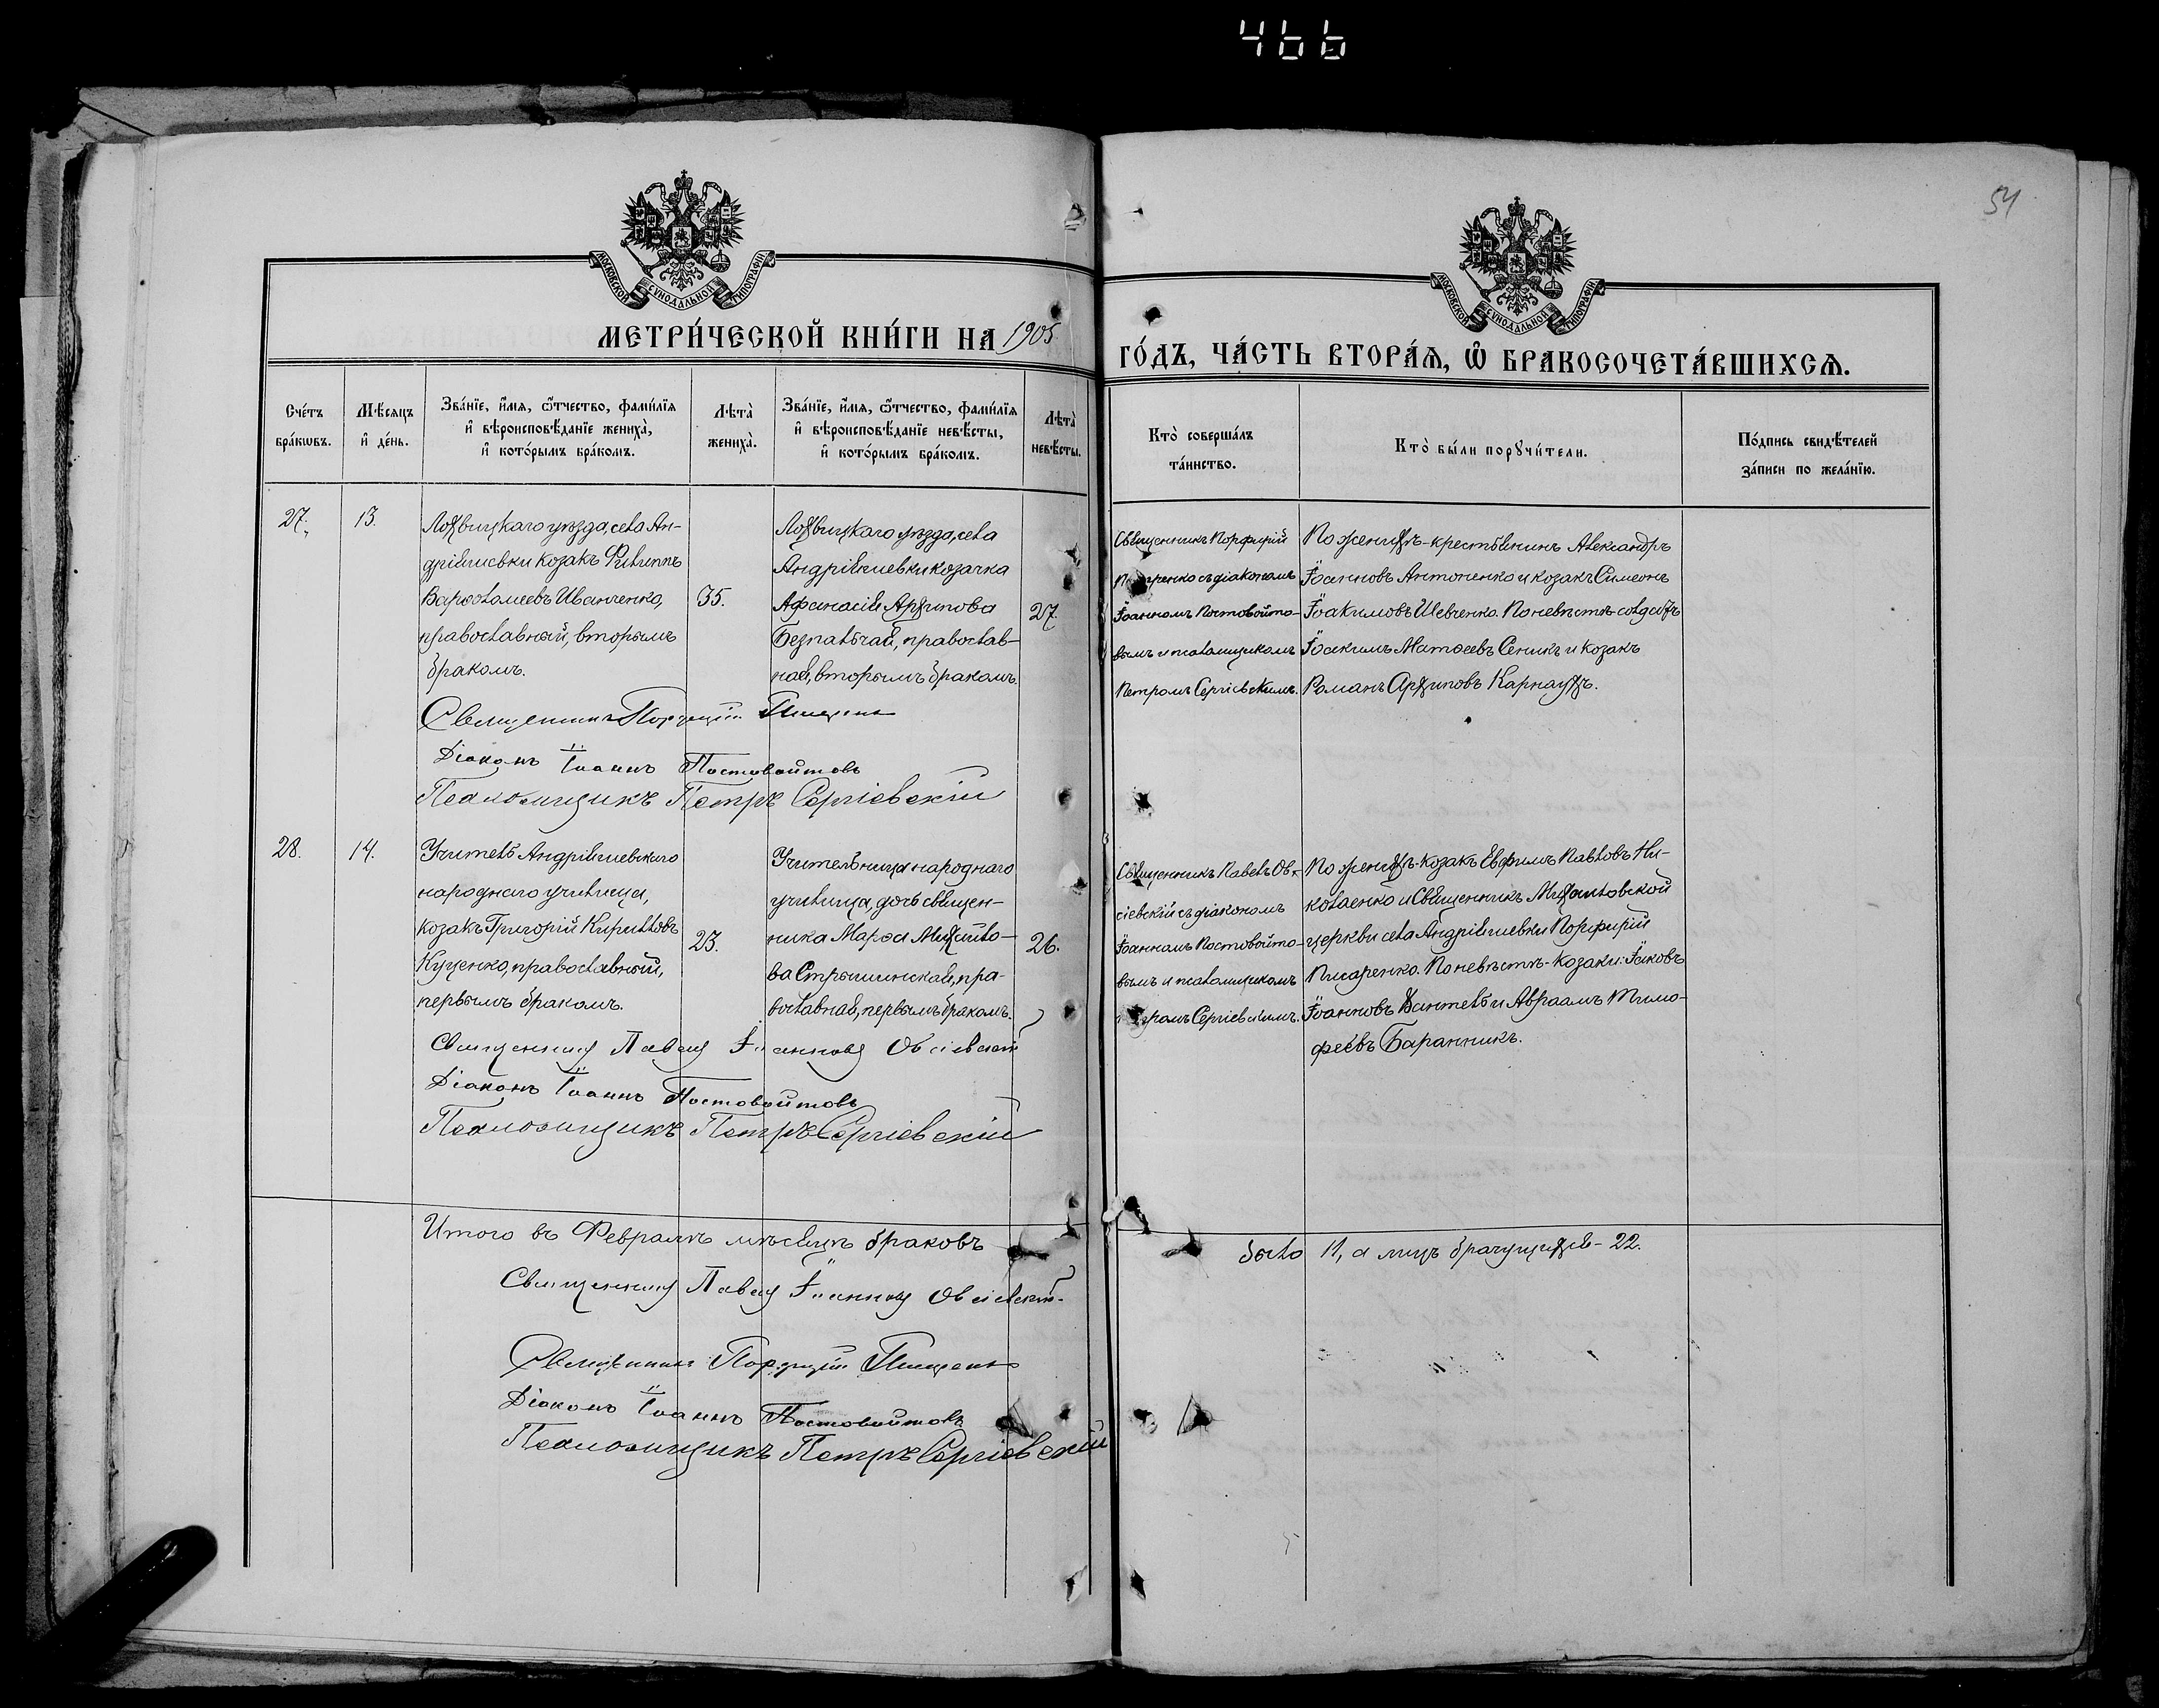 466
54
МОСКОВСКОЙ СѴНОДАЛЬНОЙ ТИПОГРАФІИ
МОСКОВСКОЙ СѴНОДАЛЬНОЙ ТИПОГРАФІИ
МЕТРИ́ЧЕСКОЙ КНИ́ГИ НА 1905
ГО́ДЪ, ЧА́СТЬ ВТОРА́Ѧ, Ѽ БРАКОСОЧЕТА́ВШИХСѦ.
Сче́тъ
бра́кѡвъ.
Мѣ́сяцъ
и҆ де́нь.
Зва́нїе, и҆́мѧ, ѻ҆́тчество, фамилїѧ
и҆ вѣроисповѣ́данїе жениха̀,
и҆ кото́рымъ бра́комъ.
Лѣта̀
жениха̀.
Зва́нїе, и҆́мѧ, ѻ҆́тчество, фамилїѧ
и҆ вѣроисповѣ́данїе невѣ́сты,
и҆ кото́рымъ бра́комъ.
Лѣта̀
невѣ́сты.
Кто̀ соверша́лъ
та́инство.
Кто̀ бы́ли порꙋчи́тели.
По́дпись свидѣ́телей
за́писи по жела́нїю.
27.
13.
Лохвицкаго уѣзда, села Ан-
дріяшевки козакъ Филиппъ
Варѳоломеевъ Иванченко,
православный, вторымъ
бракомъ.
35.
Лохвицкаго уѣзда, села
Андріяшевки козачка
Афанасія Архипова
Безпалая, православ-
ная, вторымъ бракомъ.
27.
Священникъ Порфирій
съ діакономъ
Іоанномъ Постовойто-
вымъ и псаломщикомъ
Петромъ Сергіевскимъ.
По женихѣ - крестьянинъ Александръ
Іоанновъ Антоненко и козакъ Симеонъ
Іоакимовъ Шевченко. По невѣстѣ - солдатъ
Іоакимъ Матѳеевъ Сеникъ и козакъ
Романъ Архиповъ Карнаухъ.
Священникъ Порфирій
Діаконъ Іоаннъ Постовойтовъ
Псаломщикъ Петръ Сергіевскій
28.
14.
Учитель Андріяшевскаго
народнаго училища,
козакъ Григорій Кирилловъ
Куценко, православный,
первымъ бракомъ.
23.
Учительница народнаго
училища, дочь священ-
ника Марѳа Михайло-
ва Стрышинская, пра-
вославная, первымъ бракомъ.
26.
Священникъ Павелъ Ов-
сіевскій съ діакономъ
Іоанномъ Постовойто-
вымъ и псаломщикомъ
Петромъ Сергіевскимъ.
По женихѣ - козакъ Евфимъ Павловъ Ни-
колаенко и Священникъ Михайловской
церкви села Андріяшевки Порфирій
Писаренко. По невѣстѣ - козаки: Іаковъ
Іоанновъ и Авраамъ Тимо-
феевъ Баранникъ.
Священникъ Павелъ Іоанновъ Овсіевскій
Діаконъ Іоаннъ Постовойтовъ
Псаломщикъ Петръ Сергіевскій
Итого въ Февралѣ мѣсяцѣ браковъ
было 11, а лицъ брачущихся - 22.
Священникъ Павелъ Іоанновъ Овсіевскій.
Священникъ Порфирій
Діаконъ Іоаннъ Постовойтовъ
Псаломщикъ Петръ Сергіевскій